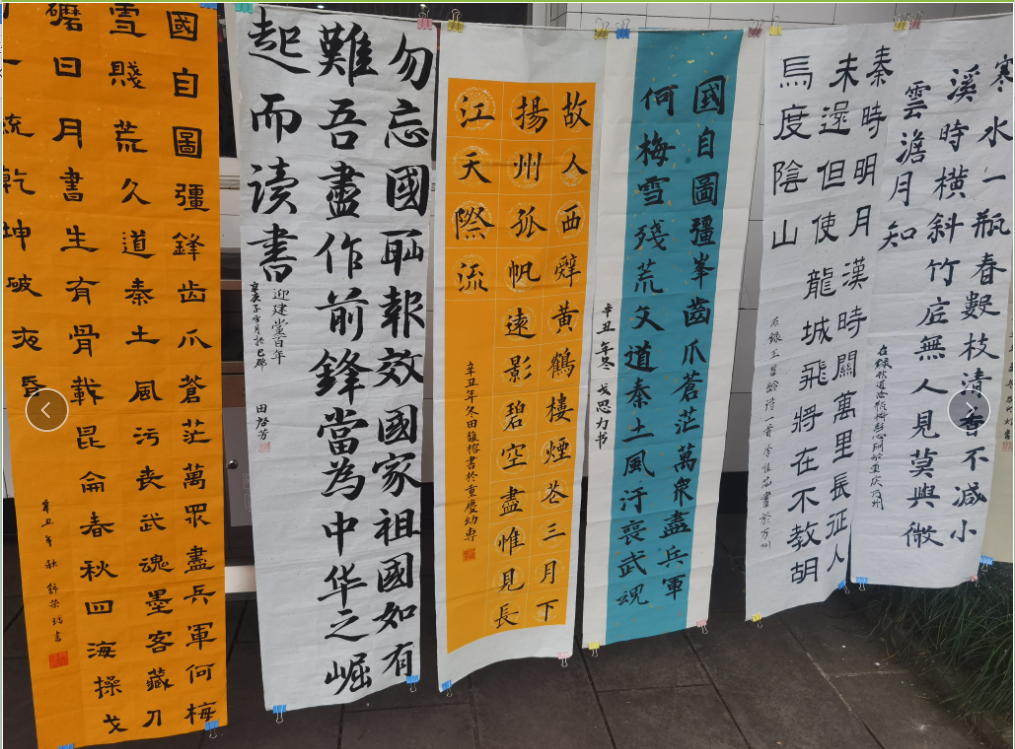 寒水一瓶春數枝清香不减小
溪時橫斜竹底無人見莫與微
雲澹月知
秦時明月漢時關萬里長征人
未還但使龍城飛將在不教胡
馬度陰山
右録王昌齡詩一首李書於万州
國自圖彊峯齒爪蒼茫萬衆盡兵軍
何梅雪残荒文道秦土風汙喪武魂
辛丑年冬 戈思力书
故人西辭黃鶴樓煙花三月下
揚州孤帆遠影碧空盡惟見長
江天際流
辛丑年冬田馥榕書於重慶幼專
勿忘國耻報效國家祖國如有
難吾盡作前鋒當為中华之崛
起而读書
迎建黨百年
田启芳
國自圖彊鋒齿爪蒼茫萬眾盡兵軍何梅
雪賤荒久道秦土風污丧武魂墨客藏刀
磨日月書生有骨載昆侖春秋四海操戈
一統乾坤破夜昏
辛丑年秋